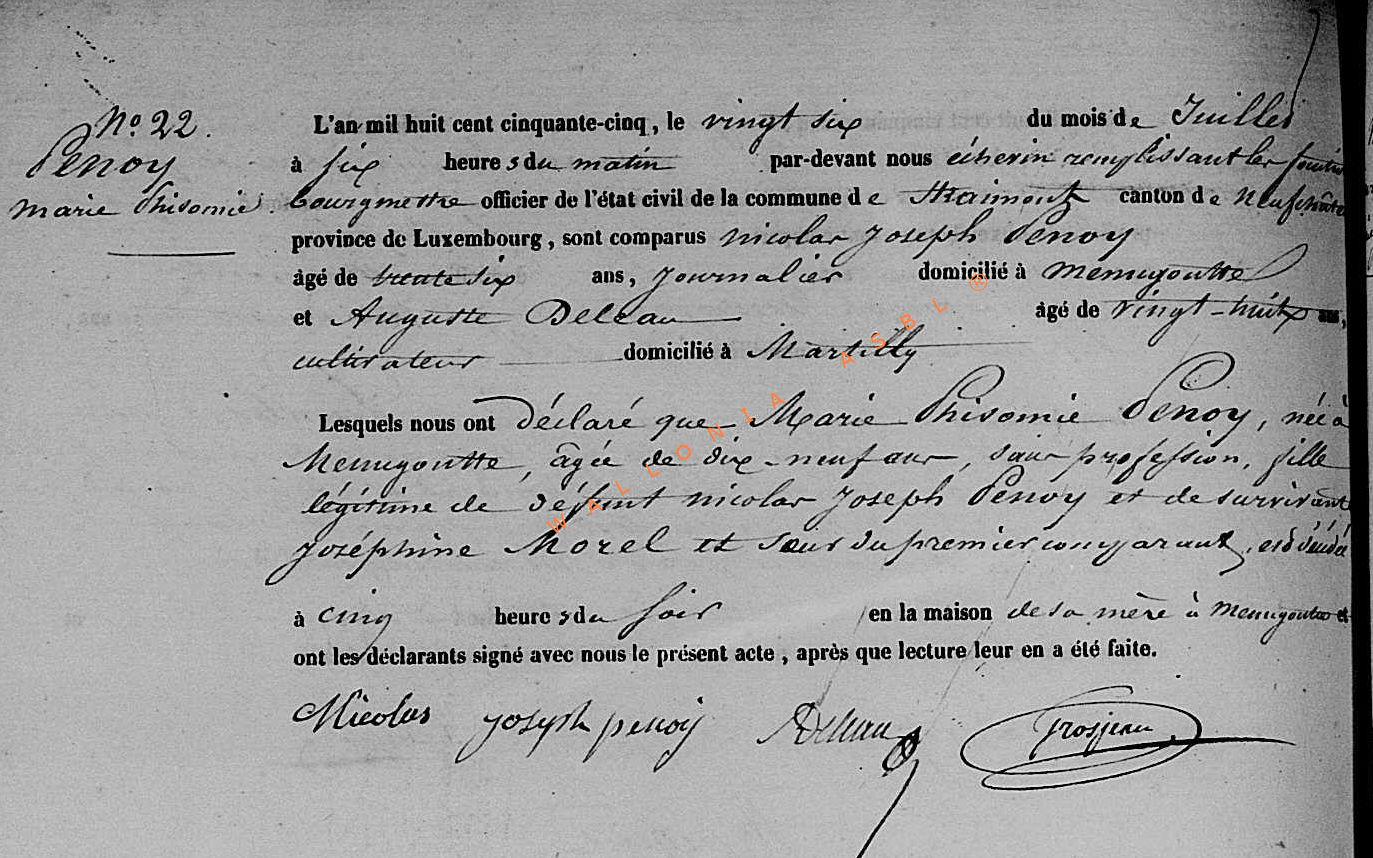 N.º 22.
Penoy
marie Phisomie.
L'an mil huit cent cinquante-cinq, le vingt six du mois de Juillet
à six heures du matin par-devant nous échevin remplissant les
bourgmettre officier de l'état civil de la commune de Straimont canton de Neufchâteau
province de Luxembourg, sont comparus nicolas Joseph Penoy
âgé de trente six ans, journalier domicilié à Menugoutte
et Auguste Deleau âgé de vingt-huit ans,
cultivateur domicilié à Martilly
Lesquels nous ont déclaré que Marie Phisomie Penoy, née à
Menugoutte, âgée de dix-neuf ans, sans profession, fille
légitime de défunt nicolas Joseph Penoy et de survivante
Joséphine Morel et sœur du premier comparant, est décédée
à cinq heures du soir en la maison de sa mère à Menugoutte et
ont les déclarants signé avec nous le présent acte, après que lecture leur en a été faite.
Nicolas Joseph penoy ADeleau Grosjean
WALLONIA ASBL ®